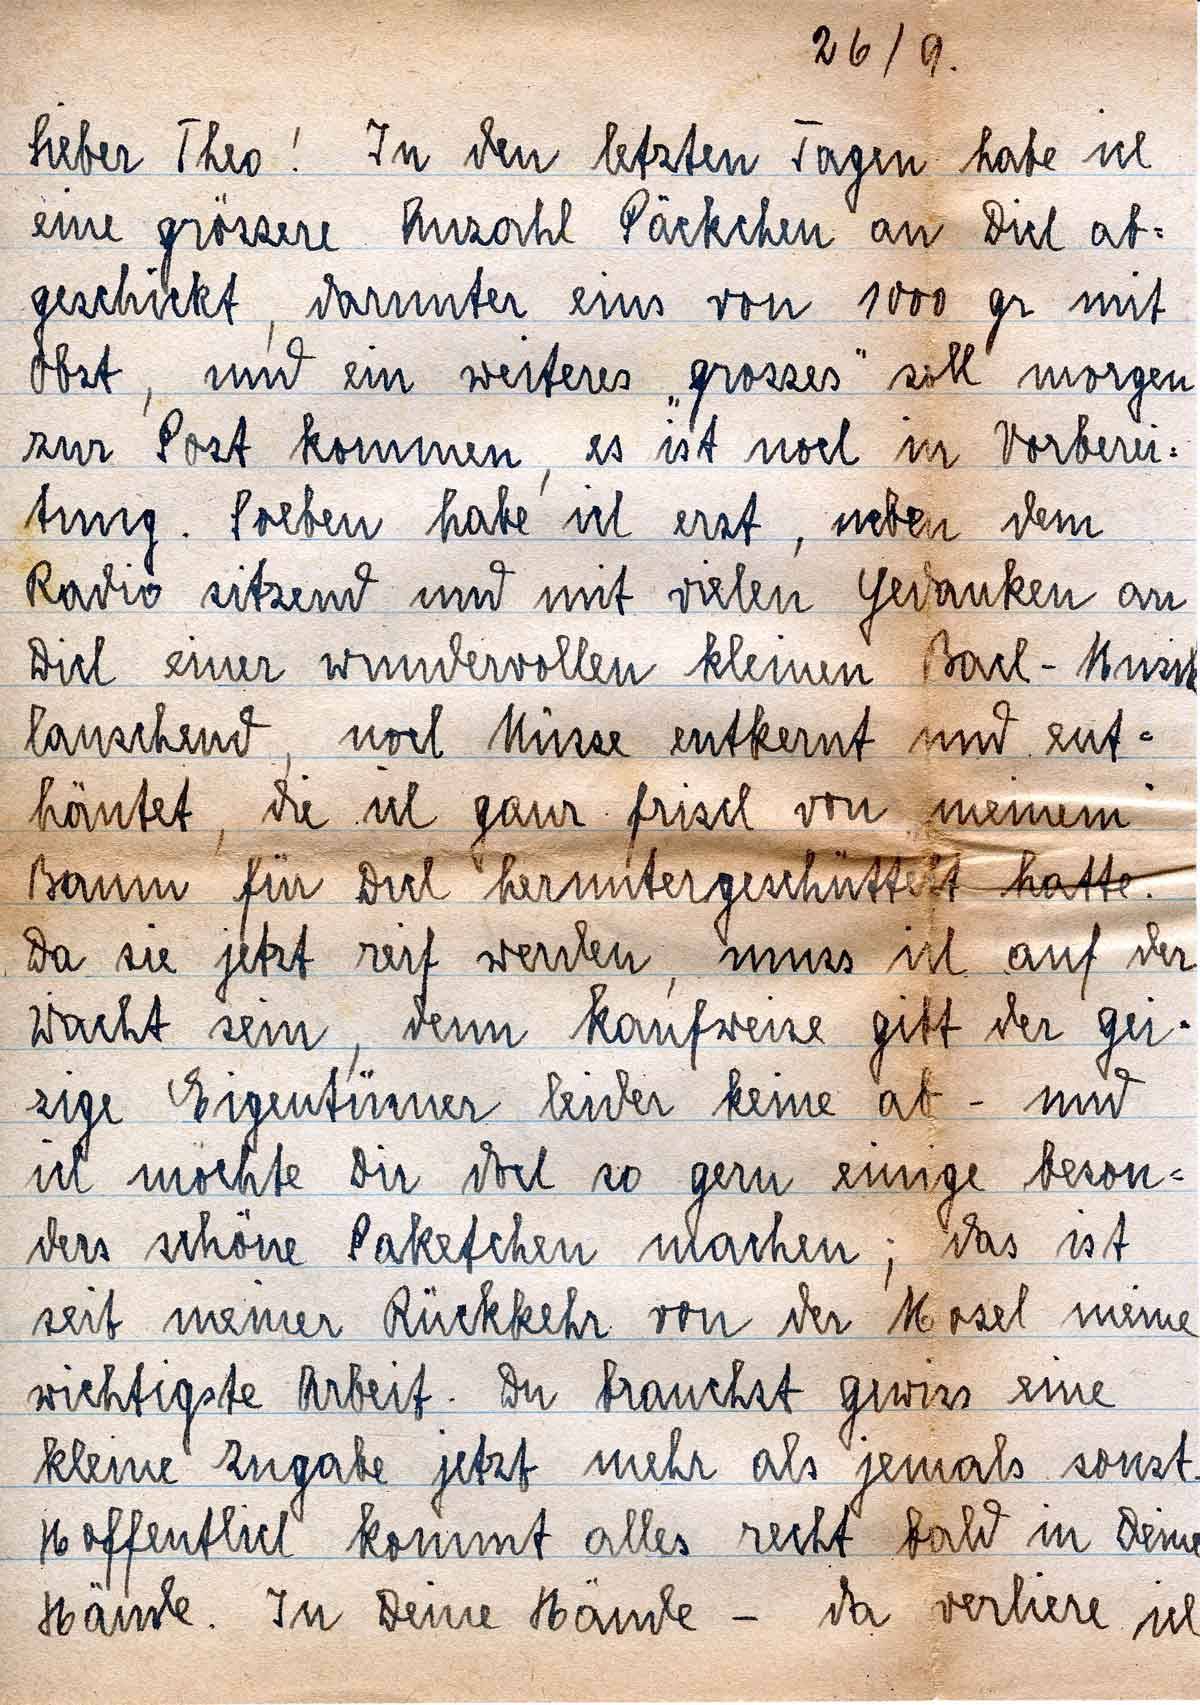 26/9.
Lieber Theo! In den letzten Tagen habe ich
eine grössere Anzahl Päckchen an Dich ab=
geschickt, darunter eins von 1000 gr mit
Obst, und ein weiteres „grosses" soll morgen
zur Post kommen, es ist noch in Vorberei=
tung. Soeben habe ich erst, neben dem
Radio sitzend und mit vielen Gedanken an
Dich einer wundervollen kleinen Bach-Musik
lauschend, noch Nüsse entkernt und ent=
häutet, die ich ganz frisch von meinem
Baum für Dich heruntergeschüttelt hatte.
Da sie jetzt reif werden, muss ich auf der
Wacht sein, denn kaufweise gibt der gei-
zige Eigentümer leider keine ab - und
ich möchte Dir doch so gern einige beson=
ders schöne Paketchen machen; das ist
seit meiner Rückkehr von der Mosel meine
wichtigste Arbeit. Du brauchst gewiss eine
kleine Zugabe jetzt mehr als jemals sonst.
Hoffentlich kommt alles recht bald in Deine
Hände. In Deine Hände - da verliere ich